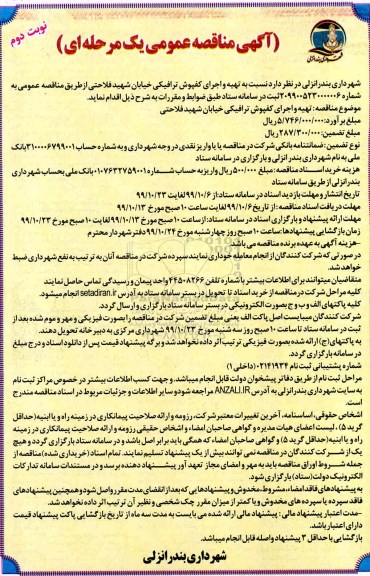 نوبت دوم
(آگهی مناقصه عمومی یک مرحله ای)
شهرداری بندرانزلی در نظر دارد نسبت به تهیه و اجرای کفپوش ترافیکی خیابان شهید فلاحتی از طریق مناقصه عمومی به
شماره ۲۰۹۹۰۰۵۲۳۰۰۰۰۰۰۶ ثبت در سامانه ستاد طبق ضوابط و مقررات به شرح ذیل اقدام نماید.
موضوع مناقصه: تهیه و اجرای کفپوش ترافیکی خیابان شهید فلاحتی
مبلغ برآورد: ۵/۷۴۶/۰۰۰/۰۰۰ ریال
مبلغ تضمین: ۲۸۷/۳۰۰/۰۰۰ ریال
نوع تضمین: ضمانتنامه بانکی شرکت در مناقصه یا واریز نقدی در وجه شهرداری و به شماره حساب ۳۱۰۰۰۰۶۷۹۹۰۰۱ بانک
ملی به نام شهرداری بندر انزلی و بارگزاری در سامانه ستاد
هزینه خرید اسناد مناقصه: مبلغ ۵۰۰/۰۰۰ ریال واریز به حساب شماره ۰۱۰۷۶۳۲۷۵۹۰۰۱ بانک ملی بحساب شهرداری
بندر انزلی از طریق سامانه ستاد
تاریخ انتشار و مهلت بازدید اسناد در سامانه ستاد: از ۹۹/۱۰/۶ لغایت ۹۹/۱۰/۲۳
مهلت دریافت اسناد مناقصه: از تاریخ ۹۹/۱۰/۶ لغایت ساعت ۱۰ صبح مورخ ۹۹/۱۰/۱۳
مهلت ارائه پیشنهاد و بارگزاری اسناد در سامانه ستاد: از ساعت ۱۰ صبح مورخ ۹۹/۱۰/۱۳ لغایت ۱۰ صبح مورخ ۹۹/۱۰/۲۳
زمان بازگشایی پیشنهادها: ساعت ۱۰ صبح روز چهارشنبه مورخ ۹۹/۱۰/۲۴ دفتر شهردار محترم
-هزینه آگهی به عهده برنده مناقصه می باشد
در صورتی که شرکت کنندگان از انجام معامله خودداری نمایند سپرده شرکت در مناقصه آنان به ترتیب به نفع شهرداری ضبط
خواهد شد.
متقاضیان میتوانند برای اطلاعات بیشتر با شماره تلفن ۴۴۵۰۸۲۶۶ واحد پیمان و رسیدگی تماس حاصل نمایند
کلیه مراحل شرکت در مناقصه از خرید اسناد تا تحویل در بستر سامانه ستاد به آدرس setadiran.ir انجام میشود.
کلیه پاکتهای الف و ب و ج بصورت الکترونیکی در بستر سامانه ستاد بارگزاری و ارسال گردد.
شرکت کنندگان میبایست اصل پاکت الف یعنی مبلغ تضمین شرکت در مناقصه را بصورت فیزیکی و مهر و موم شده بعد از
ثبت در سامانه ستاد تا ساعت ۱۰ صبح روز سه شنبه مورخ ۹۹/۱۰/۲۳ شهرداری مرکزی به دبیرخانه تحویل دهند.
به پاکتهای (ج) ارائه شده بصورت فیزیکی ترتیب اثر داده نخواهد شد و برگه پیشنهاد قیمت پس از دانلود اسناد و درج مبلغ
در سامانه بارگزاری گردد.
شماره پشتیبانی ثبت نام ۰۲۱۴۱۹۳۴ (داخلی ۱)
مراحل ثبت نام از طریق دفاتر پیشخوان دولت قابل انجام میباشد. و جهت کسب اطلاعات بیشتر در خصوص مراکز ثبت نام
به سایت شهرداری بندر انزلی به آدرس ANZALI.IR مراجعه شود و سایر اطلاعات و جزئیات مربوط در اسناد مناقصه مندرج
است.
اشخاص حقوقی، اساسنامه، آخرین تغییرات معتبر شرکت، رزومه و ارائه صلاحیت پیمانکاری در زمینه راه و یا ابنیه (حداقل
گرید ۵)، لیست اعضای هیات مدیره و گواهی صاحبان امضاء و اشخاص حقیقی رزومه و ارائه صلاحیت پیمانکاری در زمینه
راه و یا ابنیه (حداقل گرید ۵) و گواهی صاحبان امضاء که همگی باید برابر اصل باشد و در سامانه ستاد بارگزاری گردد و هیچ
یک از شرکت کنندگان در مناقصه نمی توانند بیش از یک پیشنهاد تسلیم نمایند. تمام اسناد (خریداری شده) مناقصه از
جمله شروط اوراق مناقصه باید به مهر و امضای مجاز تعهد آور پیشنهاد دهنده برسد و در مستندات سامانه تدارکات
الکترونیک دولت (ستاد) بارگزاری شود.
به پیشنهادهای فاقد امضاء، مشروط، مخدوش و پیشنهادهایی که بعد از انقضای مدت مقرر واصل شود و همچنین پیشنهادهای
فاقد سپرده یا سپرده های مخدوش و یا کمتر از میزان مقرر چک شخصی و نظیر آن ترتیب اثر داده نخواهد شد.
-مدت اعتبار پیشنهاد مالی: پیشنهاد مالی ارائه شده می بایست به مدت سه ماه از تاریخ بازگشایی پاکت پیشنهاد قیمت
دارای اعتبار باشد.
بازگشایی با حداقل ۳ پیشنهاد واصله قابل انجام میباشد.
شهرداری بندر انزلی